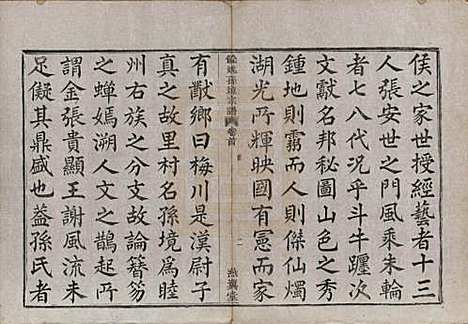 侯之家世授經藝者十三
人張安世之門風乘朱輪
者七八代況乎斗牛躔次
文獻名邦秘圖山色之秀
鍾地則霸而人則傑仙燭
湖光所輝映國有憲而家
餘姚孫境宗譜 卷首
燕翼堂
有獻鄉曰梅川是漢尉子
真之故里村名孫境爲睦
州右族之分支故論簪笏
之蟬嫣溯人文之鵲起所
謂金張貴顯王謝風流未
足儗其鼎盛也蓋孫氏者